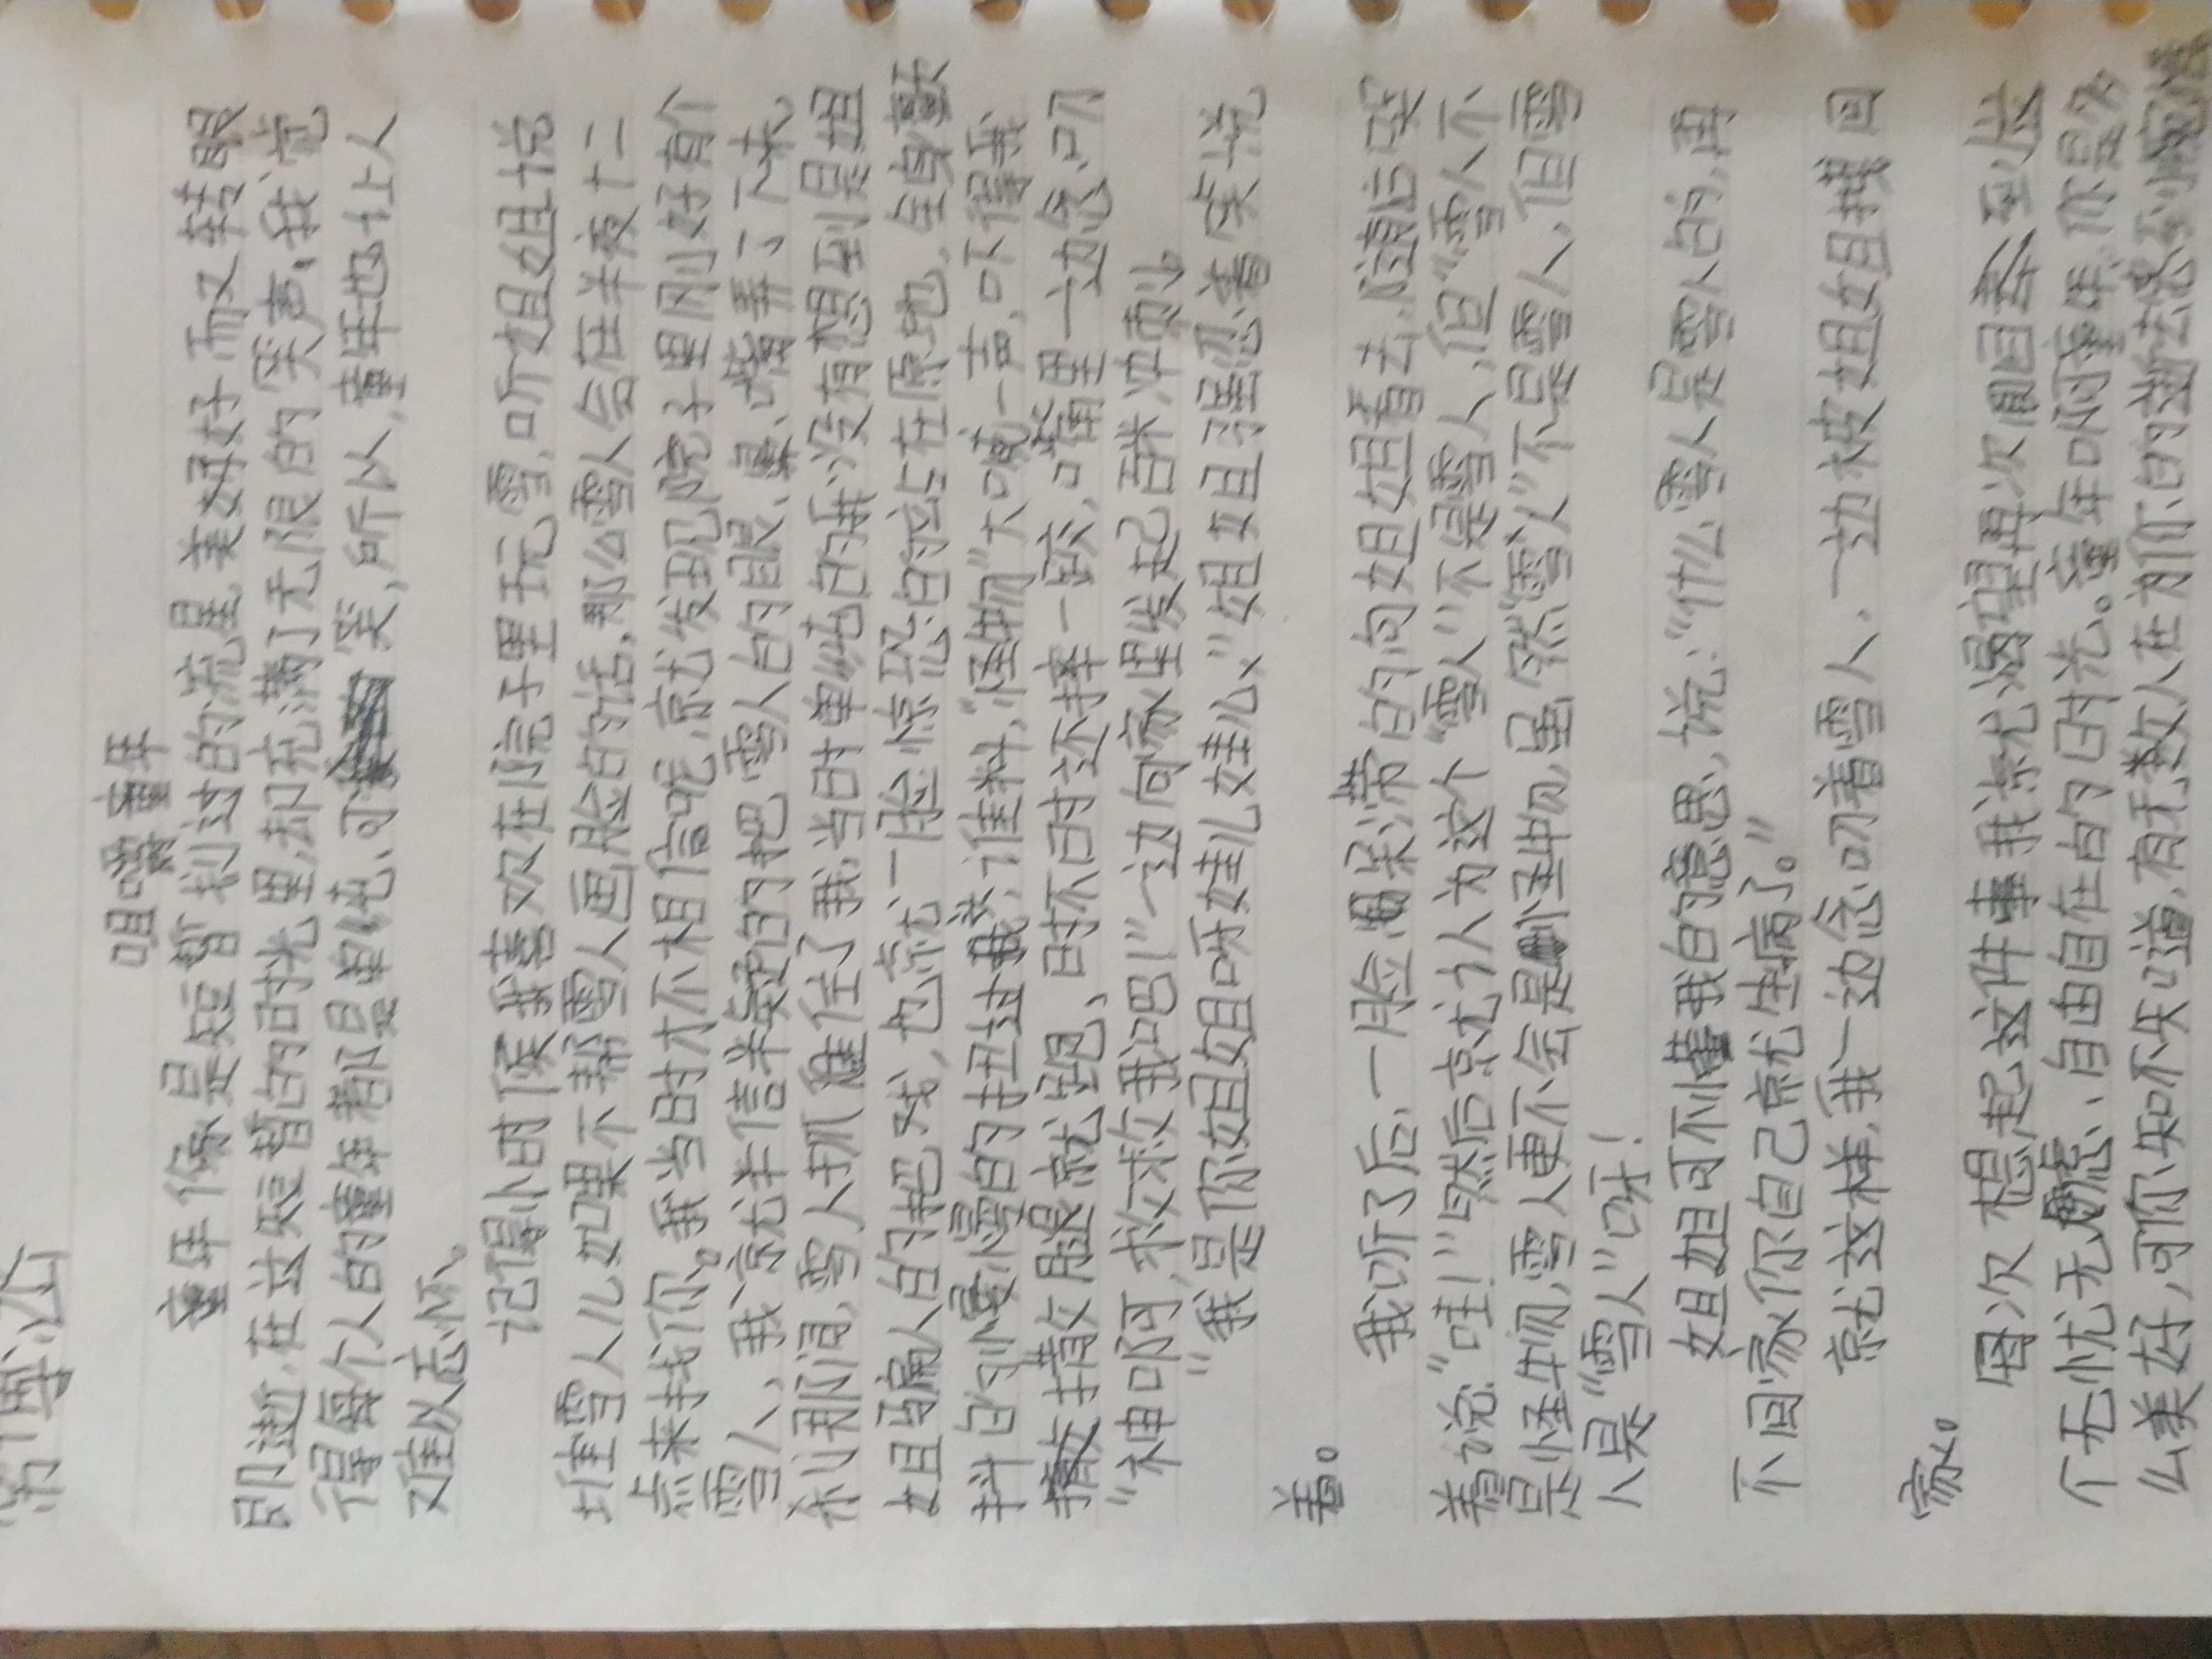 咀嚼童年
童年像是短暂划过的流星,美好而又转眼
即逝,在这短暂的时光里,却充满了无限的笑声,我觉
得每个人的童年都是单纯、可笑,所以,童年也让人
难以忘怀。
记得小时候我喜欢在院子里玩雪,听姐姐说
堆雪人儿如果不帮雪人画脸的话,那么雪人会在半夜十二
点来找你。我当时才不相信呢,就发现院子里刚好有个
雪人,我就半信半疑的把雪人的眼、鼻、嘴弄了下来,
在那间,雪人抓住了我,当时单纯的我没有想到是姐
姐骗人的把戏,也就一脸惊恐的站在原地,全身颤
抖的小嘴的
撒腿就跑,时不时还摔一跤,口里一边念叨
“神啊,求求救救我吧!”一边向家里发起百米冲刺。
“我是你姐姐呀娃儿娃儿”姐姐强忍着笑说
着。
我听了后,一脸呆滞的向姐姐看去,随后哭
着说:“哇!”然后就认为这个“雪人”不是雪人,但“雪人”不
是怪物,雪人更不会是怪物,虽然“雪人”不是雪人,但雪
人是“雪人”呀!
姐姐可不懂我的意思,说:“什么雪人是雪人的,再
不回家你自己就生病了。”
就这样,我一边念叨着雪人,一边被姐姐拽回
家。
每次想起这件事我就渴望再次倒回去,至少
个无忧无虑、自由自在的时光。童年啊童年,你是多
么美好,可你知不知道,有无数人在为你的逝去